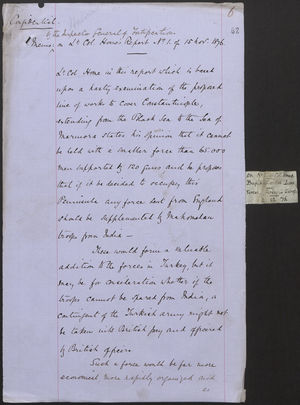 6
Confidential.
42
by the Inspector General of Fortifications
Memo: on Lt Col Home's Report No 1. of 15 Nov. 1876.
Lt Col Home in this report which is based
upon a hasty examination of the proposed
line of works to cover Constantinople,
extending from the Black Sea to the Sea of
Marmora states his opinion that it cannot
be held with a smaller force than 65.000
men supported by 120 guns and he proposes
that if it be decided to occupy this
Peninsula any force sent from England
should be supplemented by Mahomedan
troops from India —
These would form a valuable
addition to the forces in Turkey, but it
may be for consideration whether if the
troops cannot be spared from India, a
contingent of the Turkish army might not
be taken into British pay and officered
by British officers.
Such a force would be far more
economical, more rapidly organized and
so
on Lt Col Home